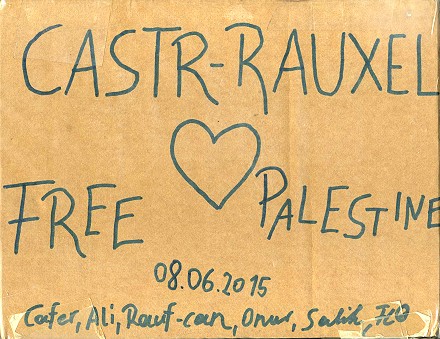 CASTR-RAUXEL
FREE PALESTINE
08.06.2015
Cafer, Ali, Rauf-can, Onur, Salih,